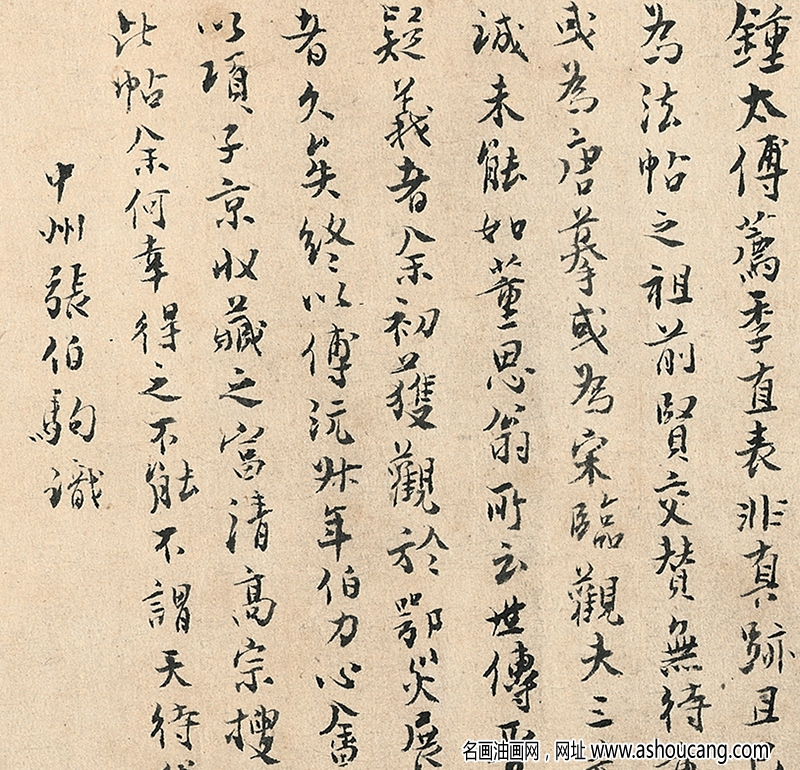 鍾太傅薦季直表非真跡且
為法帖之祖前賢交贊無待
或為唐摹或為宋臨觀夫三
誠未能如董思翁所云世傳
疑義者余初獲觀於鄂災展
者久矣終以傅沅叔年伯力
以項子京收藏之富清高宗搜
此帖余何幸得之不能不謂天待
中州張伯駒識
名画油画网，网址 www.ashoucang.com